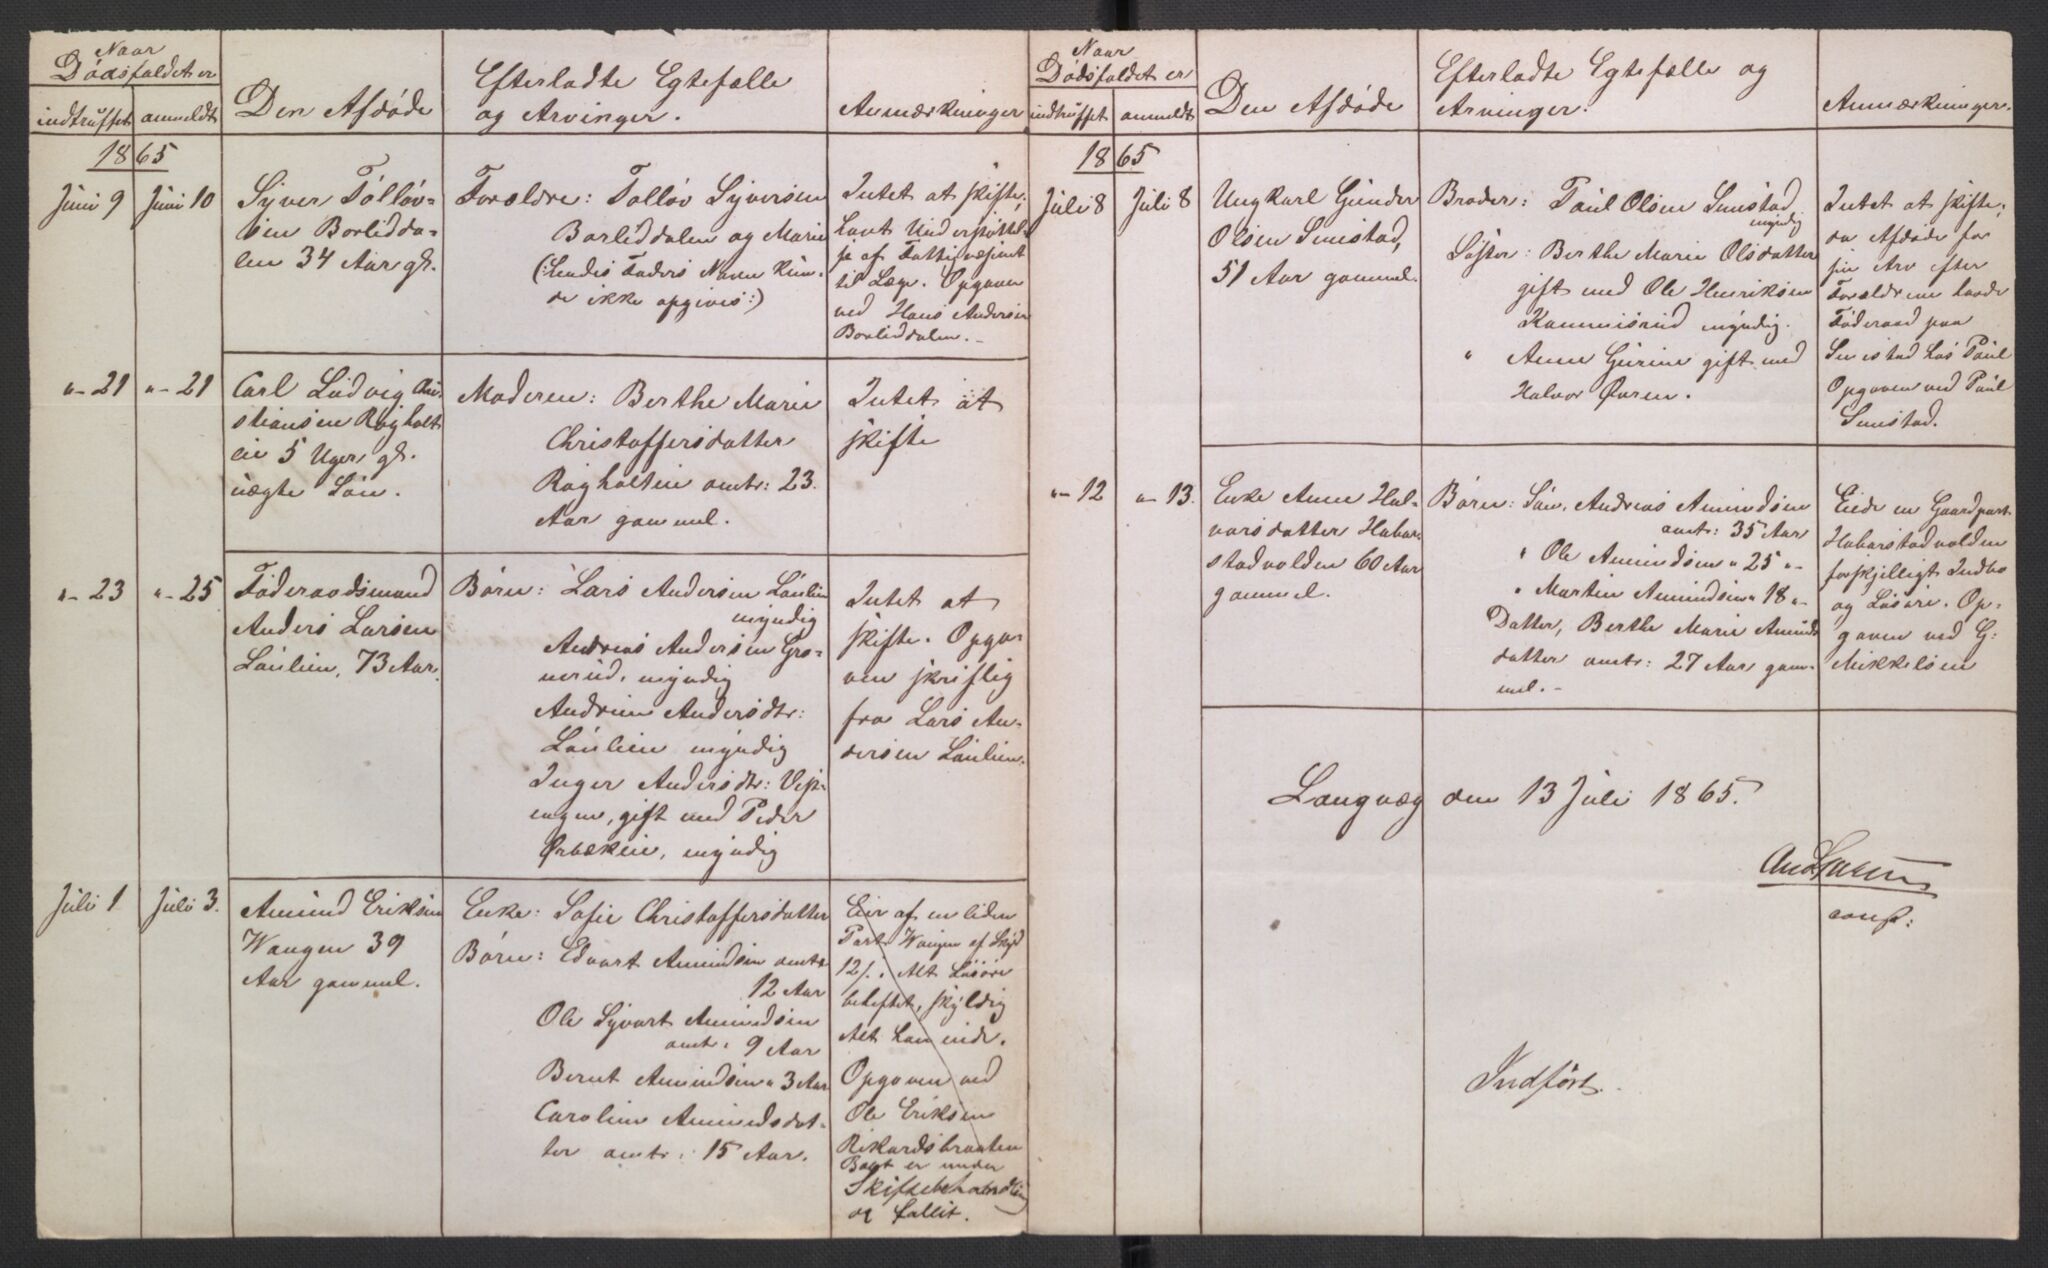 Naar
Dødsfaldet er
indtruffet
anmeldt
Den Afdøde
Efterladte Egtefælle
og Arvinger.
Anmærkninger
1865
Juni 9
Juni 10
Syver Tolløv-
sen Borliddа-
len 34 Aar gl.
Forældre: Tolløv Syversen
Borliddalen og Marie
(:hendes Faders Navn kun-
de ikke opgives:)
Intet at skifte.
havt Understøttel-
se af Fattigvæsenet
til Læge. Opgaven
ved Hans Andersen
Borliddalen.-
"- 21
"- 21
Carl Ludvig Chri-
stiansen Røgholt
ei 5 Uger gl.
uægte Søn.
Moderen: Berthe Marie
Christoffersdatter
Røgholtei omtr: 23.
Aar gammel.
Intet at
skifte
"- 23
"- 25
Føderaadsmand
Anders Larsen
Laulien, 73 Aar.
Børn: Lars Andersen Laulien
myndig
Andreas Andersen Gro-
nerud, myndig
Andrine Andersdtr:
Laulien myndig
Inger Andersdtr:
engen, gift med Peder
Ørbækken, myndig
Intet at
skifte. Opga-
ven skriftlig
fra Lars An-
dersen Laulien.
Juli 1
Juli 3.
Amund Eriksen
Wangen 39
Aar gammel.
Enke: Sofie Christoffersdatter
Børn: Edvart Amundsen omtr
12 Aar
Ole Syvart Amundsen
omtr: 9 Aar
Bernt Amundsen " 3 Aar
Caroline Amundsdat-
ter omtr: 15 Aar.
Eier af en liden
Part Wangen af Skyld
12 /. Alt Løsøre
beheftet, skyldig
Alt han eiede.
Opgaven ved
Ole Eriksen
Rikardsbraaten
Boet er under
Skiftebehandling
og fallit.
Naar
Dødsfaldet er
indtruffet
anmeldt
Den Afdøde
Efterladte Egtefælle og
Arvinger.
Anmærkninger.
1865
Juli 8
Juli 8
Ungkarl Gunder
Olsen Smestad,
51 Aar gammel.
Broder: Paul Olsen Smestad
myndig
Søster: Berthe Marie Olsdatter
gift med Ole Henriksen
Kammisrud myndig.
" Anne Gurine gift med
Halvor Øvren.
Intet at skifte,
da Afdøde for
sin Arv efter
Forældrene havde
Føderaad paa
Smestad hos Paul
Opgaven ved Paul
Smestad.
"- 12
"- 13.
Enke Anne Hal-
vorsdatter Habar-
stadvolden 60 Aar
gammel.
Børn: Søn, Andreas Amundsen
omtr: 35 Aar
" Ole Amundsen " 25 "-
" Martin Amundsen " 18 "-
Datter, Berthe Marie Amunds
datter omtr: 27 Aar gam-
mel.-
Eiede en Gaardpart
Habarstadvolden
forskjelligt Indbo
og Løsøre. Op-
gaven ved G:
Mikkelsen
Langvæg den 13 Juli 1865.
And Larsen
const:
Indført.